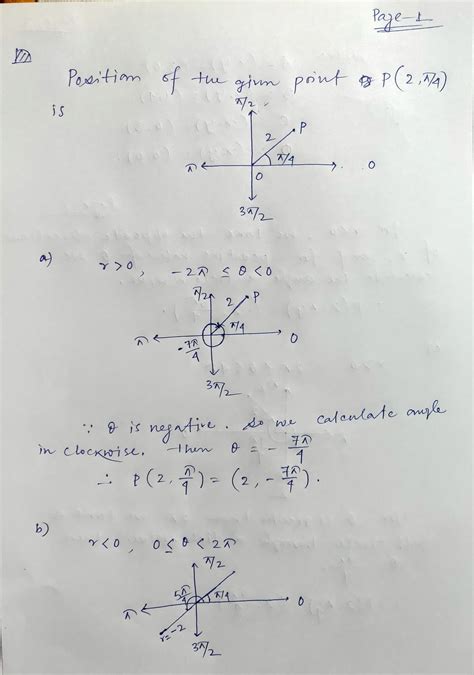 Page-1
Position of the given point P(2, π/4)
is
π/2
2
P
π
π/4
0
O
3π/2
a)
r>0, -2π ≤ θ <0
π/2
2
P
π
π/4
0
-7π/4
3π/2
∵ θ is negative. So we calculate angle
in clockwise. Then θ = - 7π/4
∴ P(2, π/4) = (2, -7π/4).
b)
r<0, 0≤θ<2π
π/2
5π/4
π/4
0
π
r=-2
3π/2